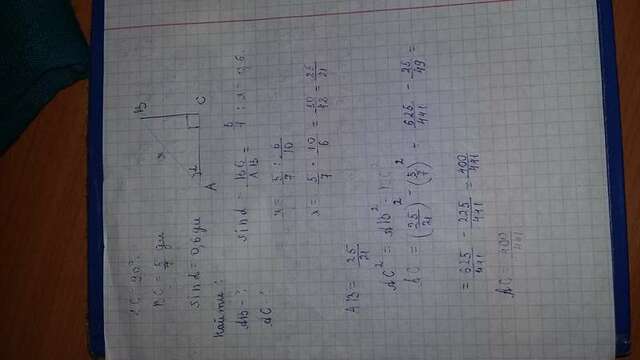 ∠C = 90°
BC = 5/7 дм
sin α = 0,6 дм
Найти:
AB - ?
AC
B
C
x
α
A
sin α = BC/AB = 5/7 : x = 0,6
x = 5/7 : 6/10
x = 5/7 · 10/6 = 50/42 = 25/21
AB = 25/21
AC² = AB² - BC²
AC = (25/21)² - (5/7)² = 625/441 - 25/49 =
= 625/441 - 225/441 = 400/441
AC = 400/441